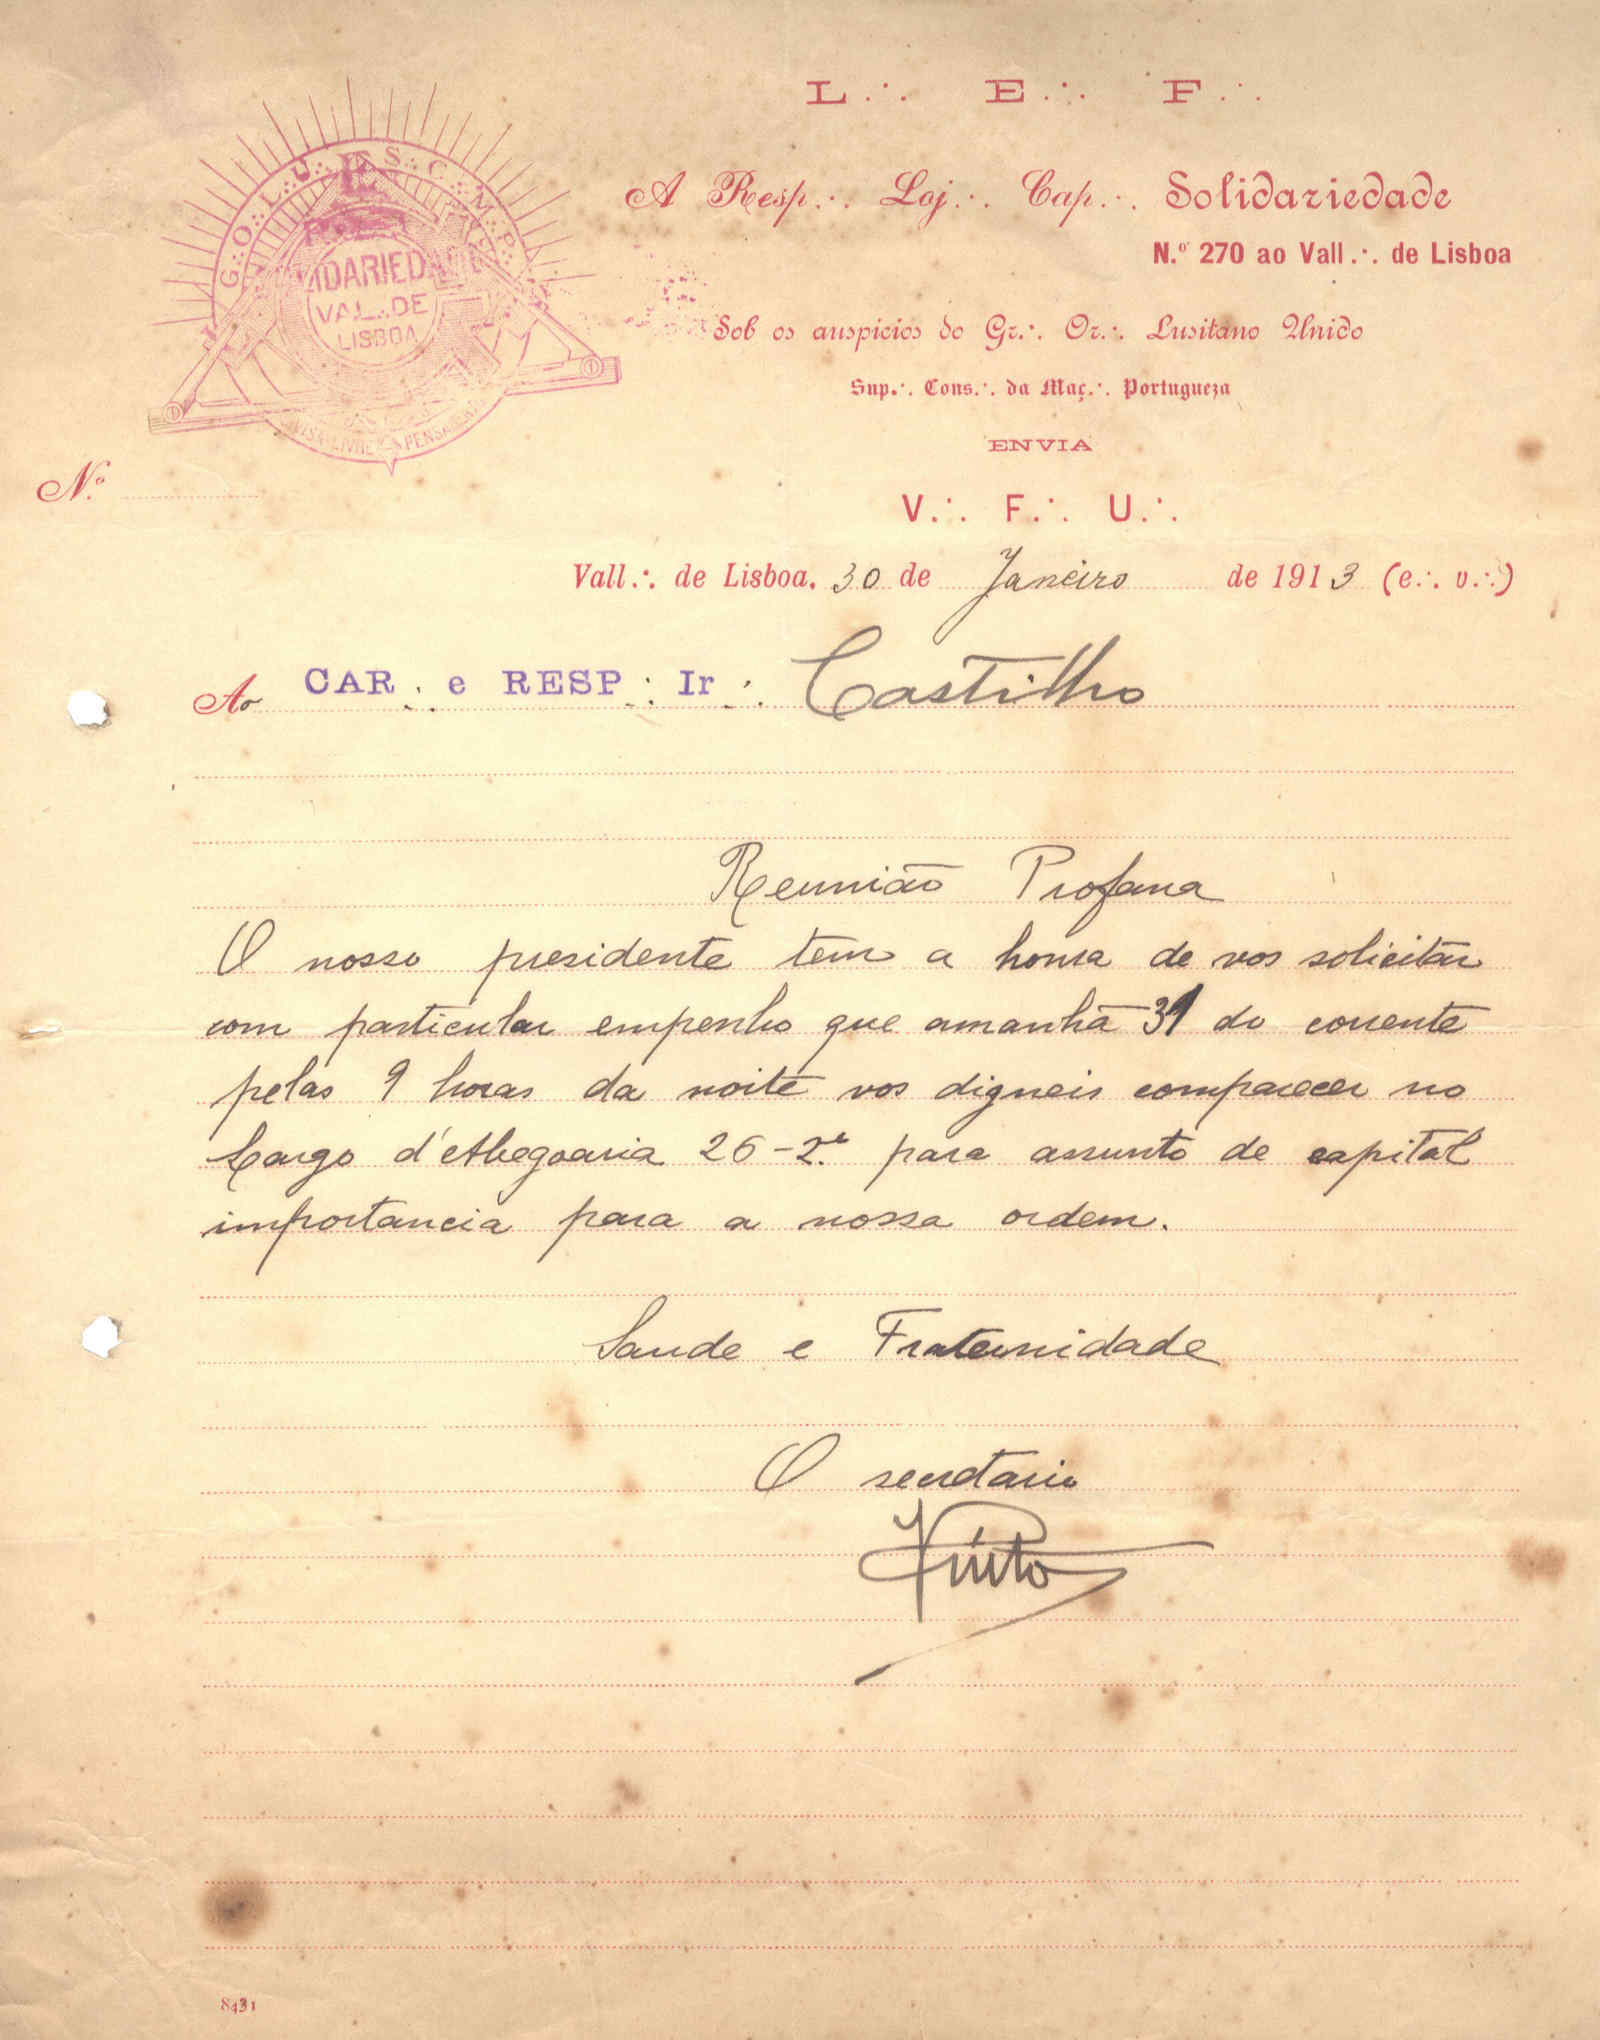 L∴ E∴ F∴
A Resp∴ Loj∴ Cap∴ Solidariedade
N.º 270 ao Vall∴ de Lisboa
Sob os auspicios do Gr∴ Or∴ Lusitano Unido
Sup∴ Cons∴ da Maç∴ Portugueza
ENVIA
V∴ F∴ U∴
G∴O∴L∴U∴ E S∴C∴M∴P∴
VAL∴DE
LISBOA
N.º
Vall∴ de Lisboa, 30 de Janeiro de 1913 (e∴ v∴)
Ao CAR∴ e RESP∴ Ir∴ Castilho
Reunião Profana
O nosso presidente tem a honra de vos solicitar
com particular empenho que amanhã 31 do corrente
pelas 9 horas da noite vos digneis comparecer no
Largo d'Abegoaria 26-2.º para assunto de capital
importancia para a nossa ordem.
Saude e Fraternidade
O secretario
Pinto
8431